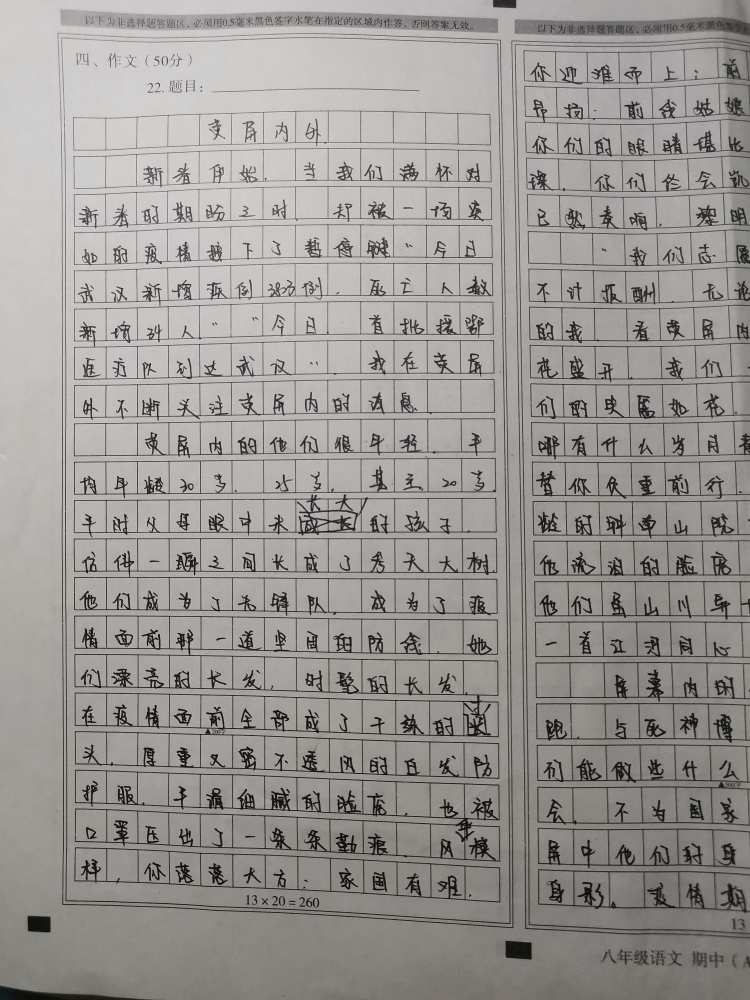 以下为非选择题答题区，必须用0.5毫米黑色签字水笔在指定的区域内作答，否则答案无效。
四、作文（50分）
22. 题目：
荧屏内外
新春伊始，当我们满怀对
新春的期盼之时，却被一场突
如的疫情摁下了暂停键“今日
武汉新增病例3825例，死亡人数
新增34人。”“今日，首批援鄂
医疗队到达武汉”，我在荧屏
外不断关注荧屏内的消息。
荧屏内的他们很年轻，平
均年龄30岁，25岁，甚至20岁
平时父母眼中未长大的孩子，
仿佛一瞬之间长成了参天大树
他们成为了先锋队，成为了疫
情面前那一道坚固的防线，她
们漂亮的长发，时髦的长发，
在疫情面前全部成了干练的寸
头，厚重又密不透风的白发防
护服，平滑细腻的脸庞，也被
口罩压出了一条条勒痕，风模
样，你落落大方：家国有难，
13×20=260
以下为非选择题答题区，必须用0.5毫米黑色签字
你迎难而上；前
昂扬：前线姑娘
你们的眼睛堪比
璨，你们终会凯
已然奏响，黎明
“我们志愿
不计报酬，无论
的我，看荧屏内
花盛开，我们
们的笑靥如花，
哪有什么岁月静
替你负重前行，
龄的钟南山院
他流泪的脸庞
他们虽山川异
一首江河同心
屏幕内的
跑，与死神博
们能做些什么
会，不为国家
屏中他们的身
身形。疫情期
13
八年级语文 期中（A